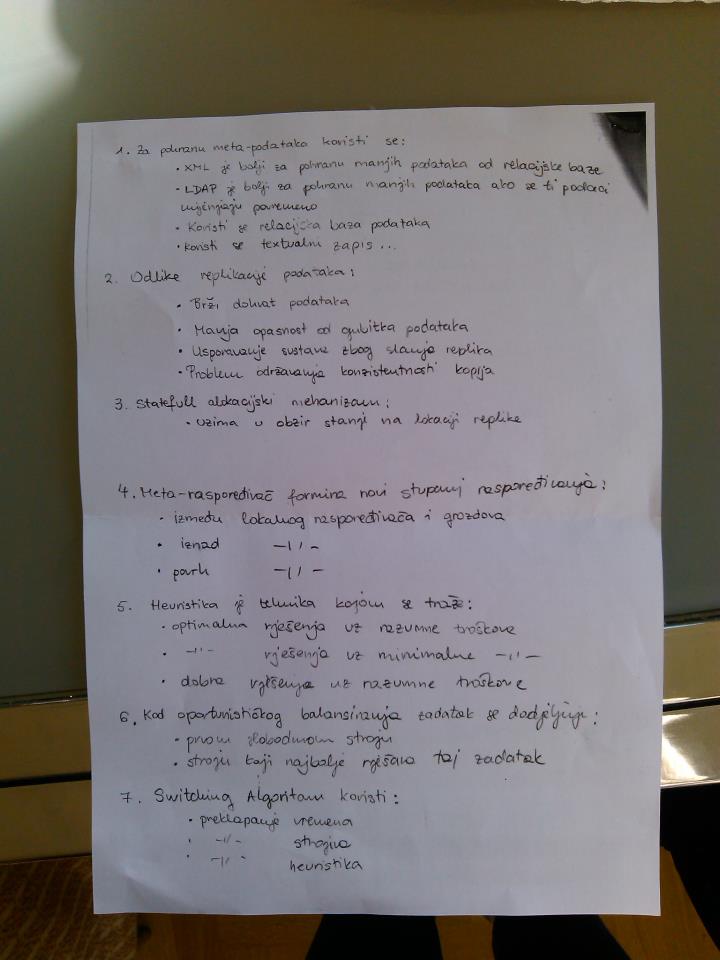 1. Za pohranu meta-podataka koristi se:
• XML je bolji za pohranu manjih podataka od relacijske baze
• LDAP je bolji za pohranu manjih podataka ako se ti podaci
mijenjaju povremeno
• Koristi se relacijska baza podataka
• Koristi se textualni zapis ...
2. Odlike replikacije podataka:
• Brži dohvat podataka
• Manja opasnost od gubitka podataka
• Usporavanje sustava zbog slanja replika
• Problem održavanja konzistentnosti kopija
3. Statefull alokacijski mehanizam:
• uzima u obzir stanje na lokaciji replike
4. Meta-raspoređivač formira novi stupanj raspoređivanja:
• između lokalnog raspoređivača i grozdova
• iznad -11-
• povrh -11-
5. Heuristika je tehnika kojom se traže:
• optimalna rješenja uz razumne troškove
• -11- rješenja uz minimalne -11-
• dobra rješenja uz razumne troškove
6. Kod oportunističkog balansiranja zadatak se dodjeljuje:
• prvom slobodnom stroju
• stroju koji najbolje rješava taj zadatak
7. Switching Algoritam koristi:
• preklapanje vremena
• -11- strojeva
• -11- heuristika